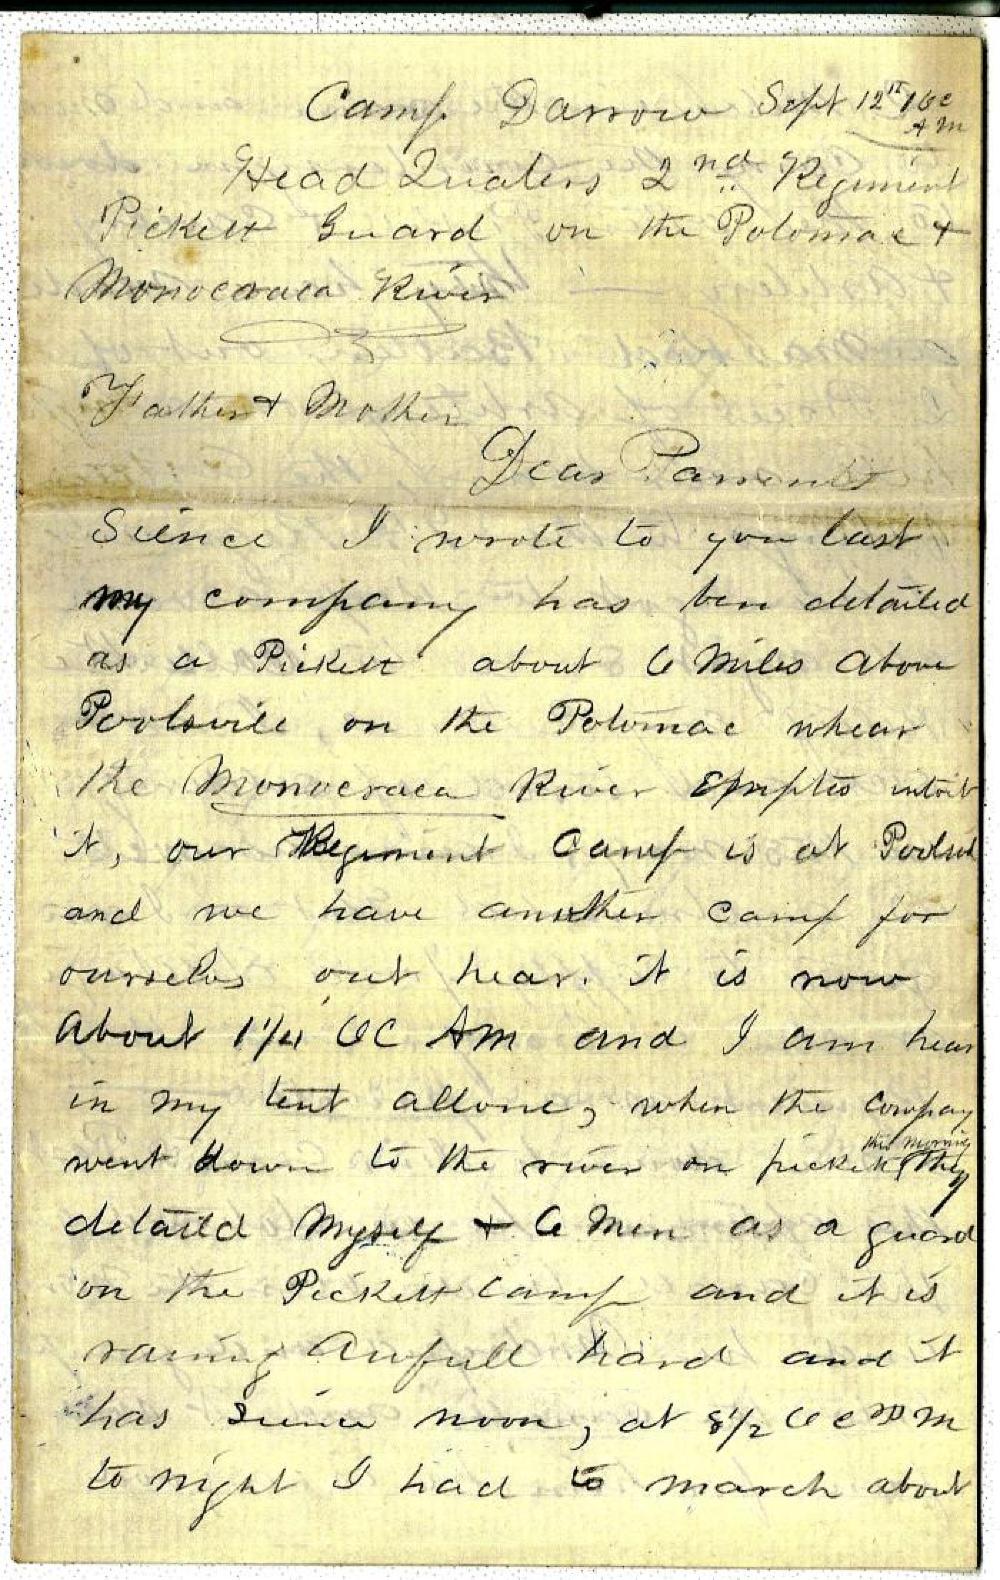 Camp Darrow Sept 12th 1 Oc
A M
Head Quaters 2nd Regiment
Pickett Guard on the Potomac +
Monocraca River
Father + Mother
Dear Parrents
Sience I wrote to you last
my company has ben detailed
as a Pickett about 6 Miles above
Poolsvile on the Potomac whear
the Monocraca River Emptes intoit
it, our Regiment Camp is at Poolsvil
and we have another camp for
ourselvs out hear. it is now
About 1 1/4 OC AM and I am hear
in my tent allone, when the compay
this morning
went down to the river on pickett they
detaild Myself + 6 Men as a guard
on the Pickett camp and it is
raining Awfull hard and it
has sience noon, at 8 1/2 O C P M
to night I had to march about